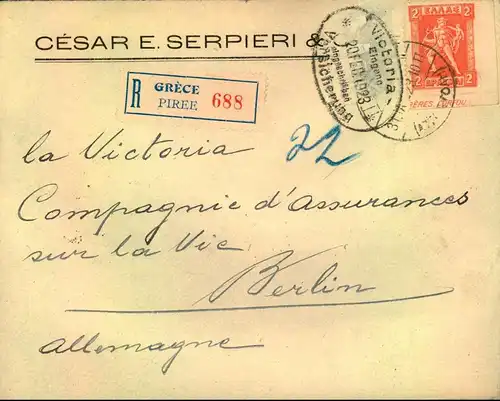 CÉSAR E. SERPIERI &
2 ΕΛΛΑΣ 2
Victoria-
Eingang
* 20 FEB. 1923
R GRÈCE
PIREE 688
22
La Victoria
Compagnie d'Assurances
sur la Vie
Berlin
Allemagne